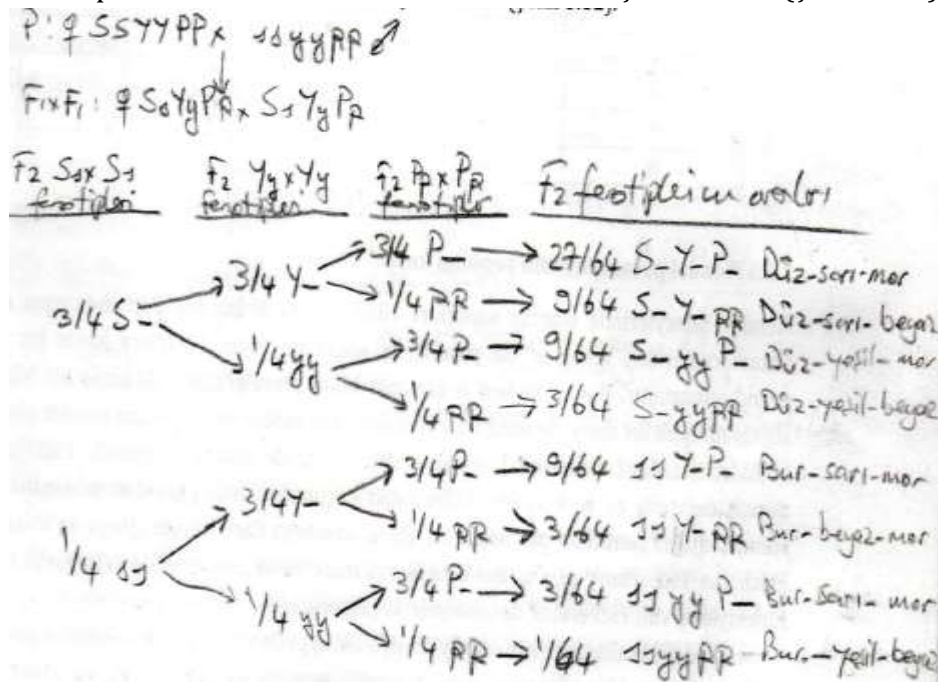 P: ♀ SSYYPP x ssyypp ♂
F1xF1: ♀ SsYyPp x SsYyPp
F2 Ss x Ss fenotipleri F2 Yy x Yy fenotipleri F2 Pp x Pp fenotipler F2 fenotiplerinin oranları
3/4 P_ → 27/64 S_Y_P_ Düz-sarı-mor
3/4 Y_
1/4 pp → 9/64 S_Y_pp Düz-sarı-beyaz
3/4 S_
3/4 P_ → 9/64 S_yyP_ Düz-yeşil-mor
1/4 yy
1/4 pp → 3/64 S_yypp Düz-yeşil-beyaz
3/4 P_ → 9/64 ssY_P_ Bur-sarı-mor
3/4 Y_
1/4 pp → 3/64 ssY_pp Bur-beyaz-mor
1/4 ss
3/4 P_ → 3/64 ssyyP_ Bur-sarı-mor
1/4 yy
1/4 pp → 1/64 ssyypp Bur.-yeşil-beyaz